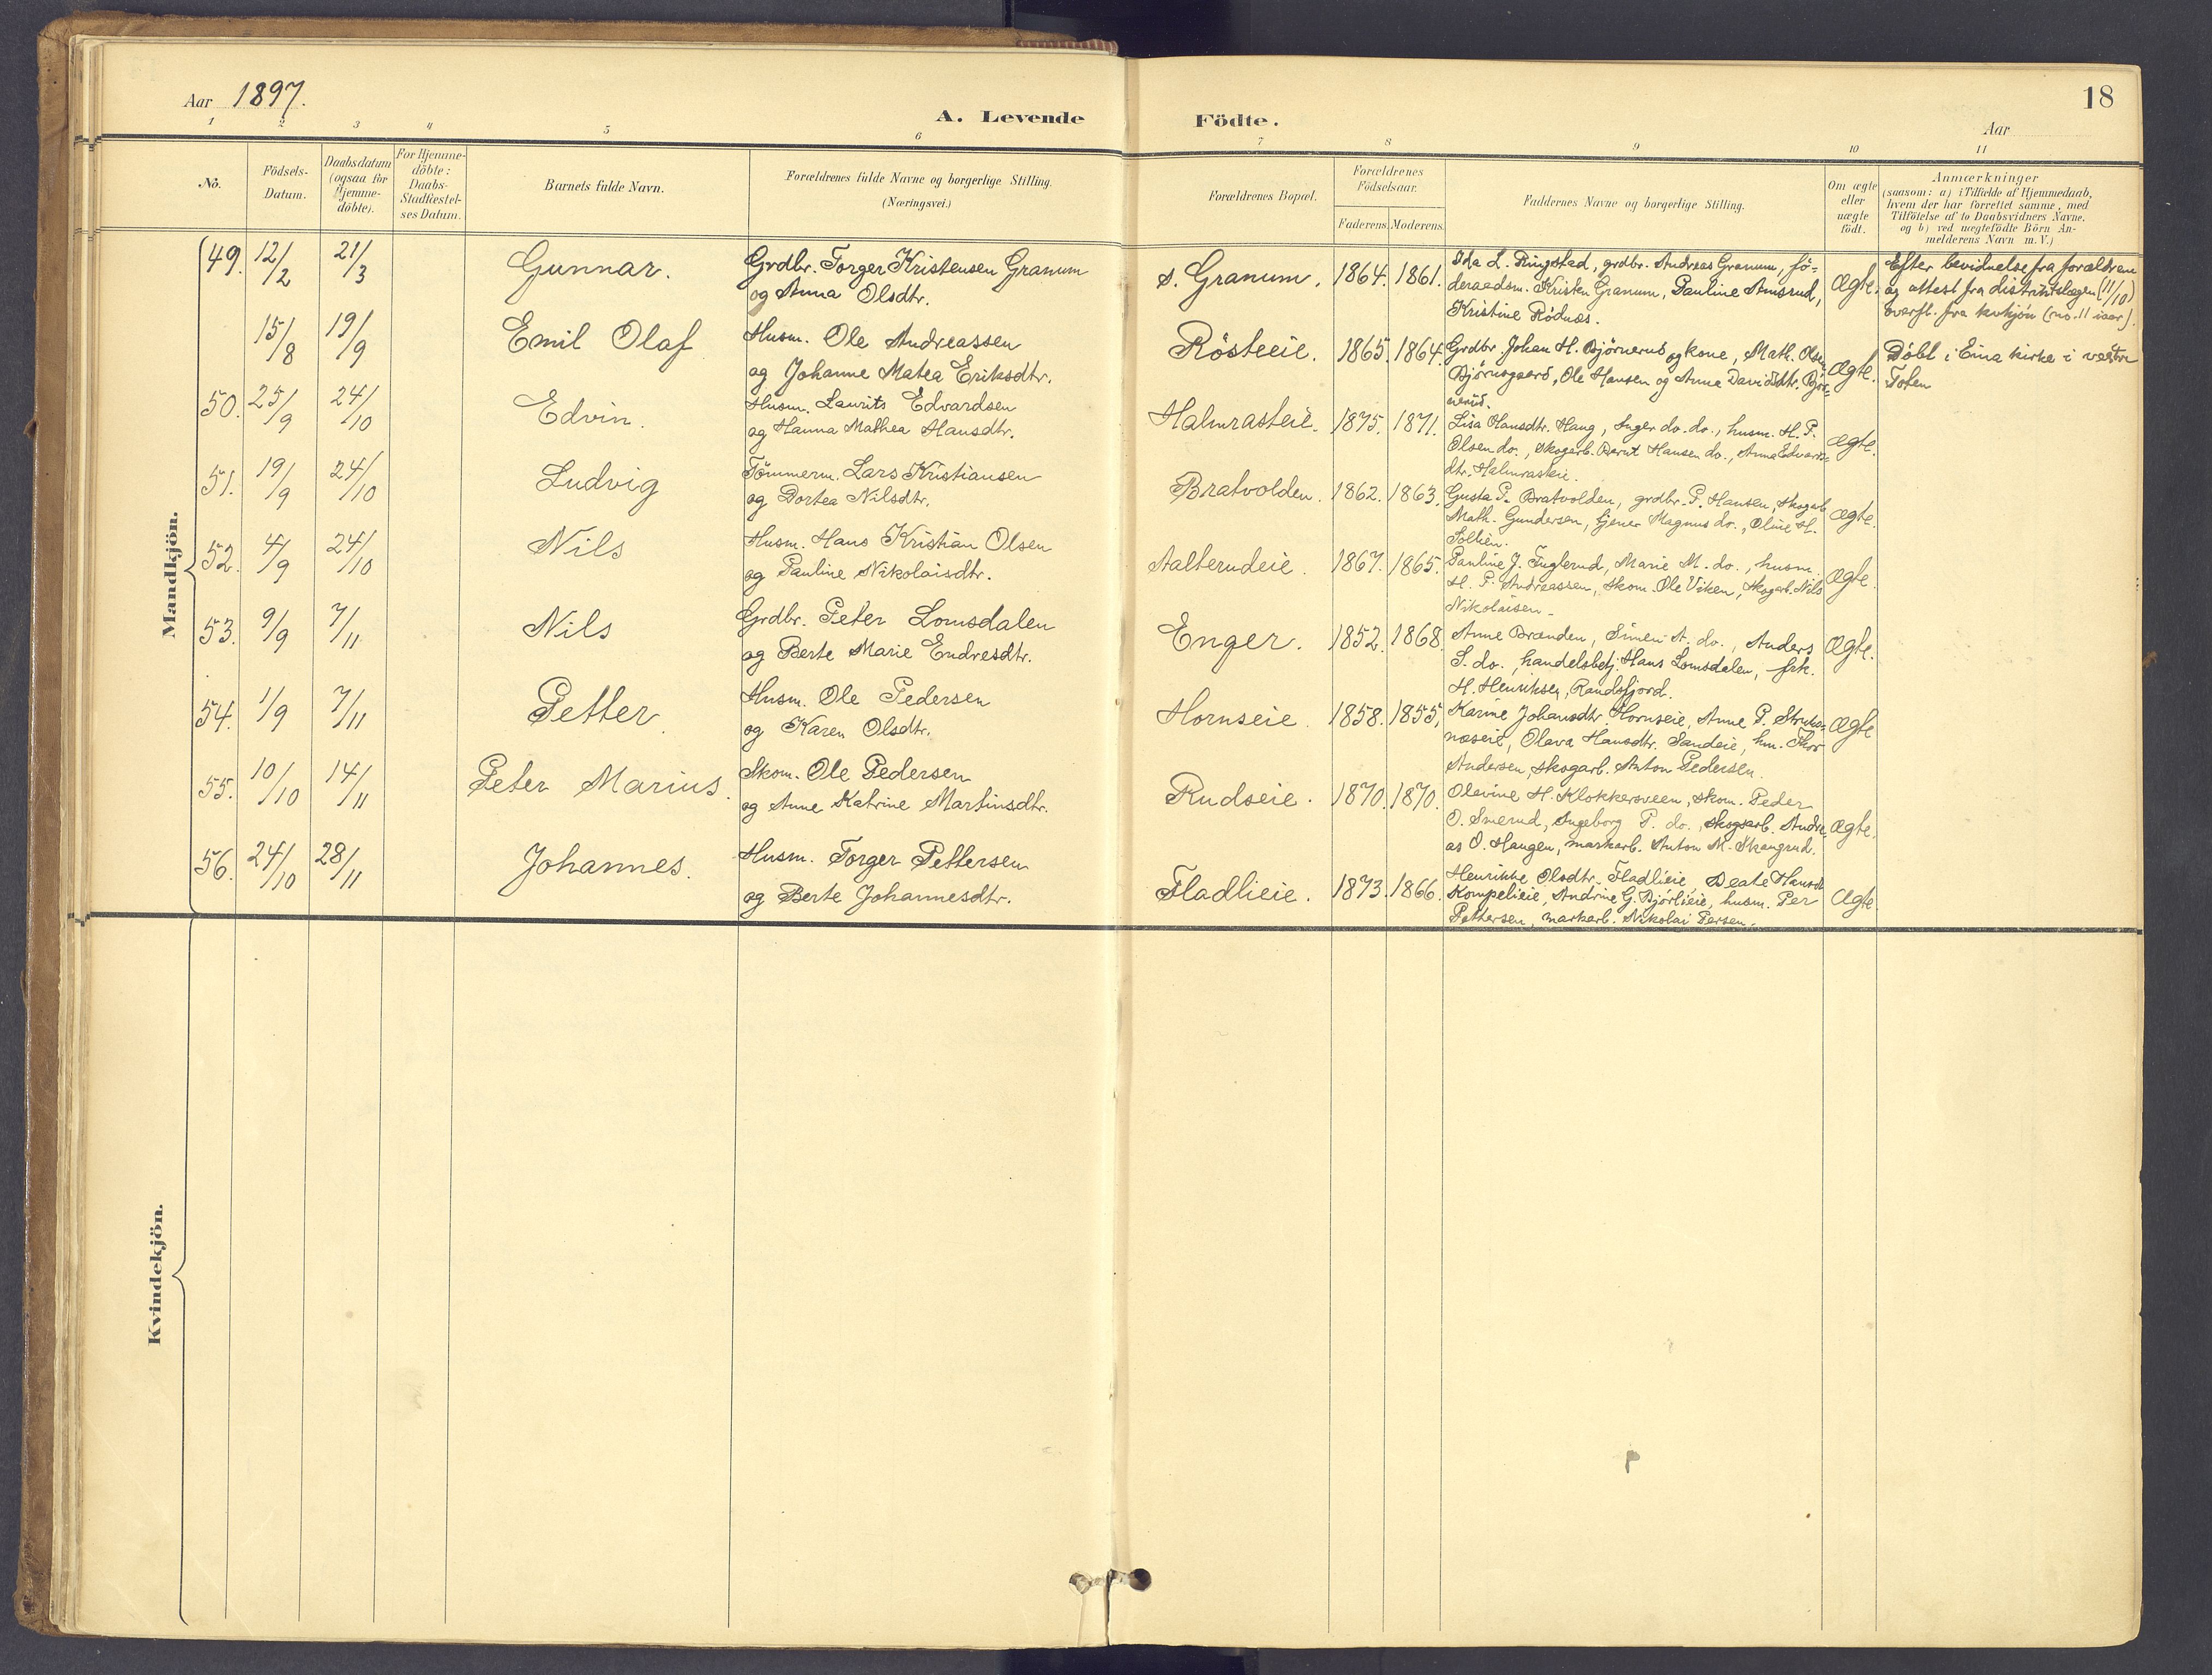 Aar 1897.
A. Levende Födte.
18
Aar
1 2 3 4 5 6 7 8 9 10 11
No.
Födsels-
Datum.
Daabsdatum
(ogsaa for
Hjemme-
döbte).
For Hjemme-
döbte:
Daabs-
Stadfæstel-
ses Datum.
Barnets fulde Navn.
Forældrenes fulde Navne og borgerlige Stilling.
(Næringsvei.)
Forældrenes Bopæl.
Forældrenes
Födselsaar.
Faderens. Moderens.
Faddernes Navne og borgerlige Stilling.
Om ægte
eller
uægte
födt.
Anmærkninger
(saasom: a) i Tilfælde af Hjemmedaab,
hvem der har forrettet samme, med
Tilföielse af to Daabsvidners Navne.
og b) ved uægtefödte Börn An-
melderens Navn m. V.)
Mandkjön.
49. 12/2 21/3 Gunnar.
Grdbr. Torger Kristensen Granum
og Anna Olsdtr.
s. Granum. 1864. 1861.
Ida L. Ringstad, grdbr. Andreas Granum, fö-
deraadsm. Kristen Granum, Pauline Amsrud,
Kristine Rödnæs.
Ægte.
Efter bevidnelse fra forældrene
og attest fra distriktslægen (11/10)
overfl. fra kvkjön (no. 11 iaar).
15/8 19/9 Emil Olaf
Husm. Ole Andreassen
og Johanne Matea Eriksdtr.
Rösteeie. 1865. 1864.
Grdbr Johan H. Björnerud og kone, Math. Olsen
Björnsgaard, Ole Hansen og Anna Davidsdtr. Björ-
nerud.
Ægte.
Döbt i Eina kirke i vestre
Toten
50. 25/9 24/10 Edvin.
Husm. Laurits Edvardsen
og Hanna Mathea Hansdtr.
Halmrasteie. 1875. 1871.
Lisa Hansdtr. Haug, Inger do. do., husm. H. P.
Olsen do., skogarb. Bernt Hansen do., Anna Edvards-
dtr. Halmrasteie.
Ægte.
51. 19/9 24/10 Ludvig
Tömmerm. Lars Kristiansen
og Dortea Nilsdtr.
Bratvolden. 1862. 1863.
Gusta P. Bratvolden, grdbr. P. Hansen, skogarb
Math. Gundersen, tjener Magnus do., Oline H.
Ægte.
52. 4/9 24/10 Nils
Husm. Hans Kristian Olsen
og Pauline Nikolaisdtr.
Aalterudeie. 1867. 1865.
Pauline J. Fuglerud, Marie M. do., husm.
H. P. Andreassen, skom. Ole Viken, skogarb. Nils
Nikolaisen.
Ægte.
53. 9/9 7/11 Nils
Grdbr. Peter Lomsdalen
og Berte Marie Endresdtr.
Enger. 1852. 1868.
Anne Brænden, Simen A. do., Anders
S. do., handelsbetj. Hans Lomsdalen, frk.
H. Henriksen, Randsfjord.
Ægte.
54. 1/9 7/11 Petter.
Husm. Ole Pedersen
og Karen Olsdtr.
Hornseie. 1858. 1855.
Karine Johansdtr. Hornseie, Anne P.
næseie, Olava Hansdtr. Sandeie, hm. Thor
Andersen, skogarb. Anton Pedersen.
Ægte
55. 10/10 14/11 Peter Marius.
Skom. Ole Pedersen
og Anne Katrine Martinsdtr.
Rudseie. 1870. 1870.
Olevine H. Klokkersveen, skom. Peder
O. Smerud, Ingeborg P. do., skogsarb. Andre-
as O. Haugen, markarb. Anton M. Skangrud.
Ægte.
56. 24/10 28/11 Johannes.
Husm. Torger Pettersen
og Berte Johannesdtr.
Fladlieie. 1873. 1866.
Henrikke Olsdtr. Fladlieie, Beate Hansdt
Kompelieie, Andrine G. Björlieie, husm. Per
Pettersen, markarb. Nikolai Persen.
Ægte
Kvindekjön.